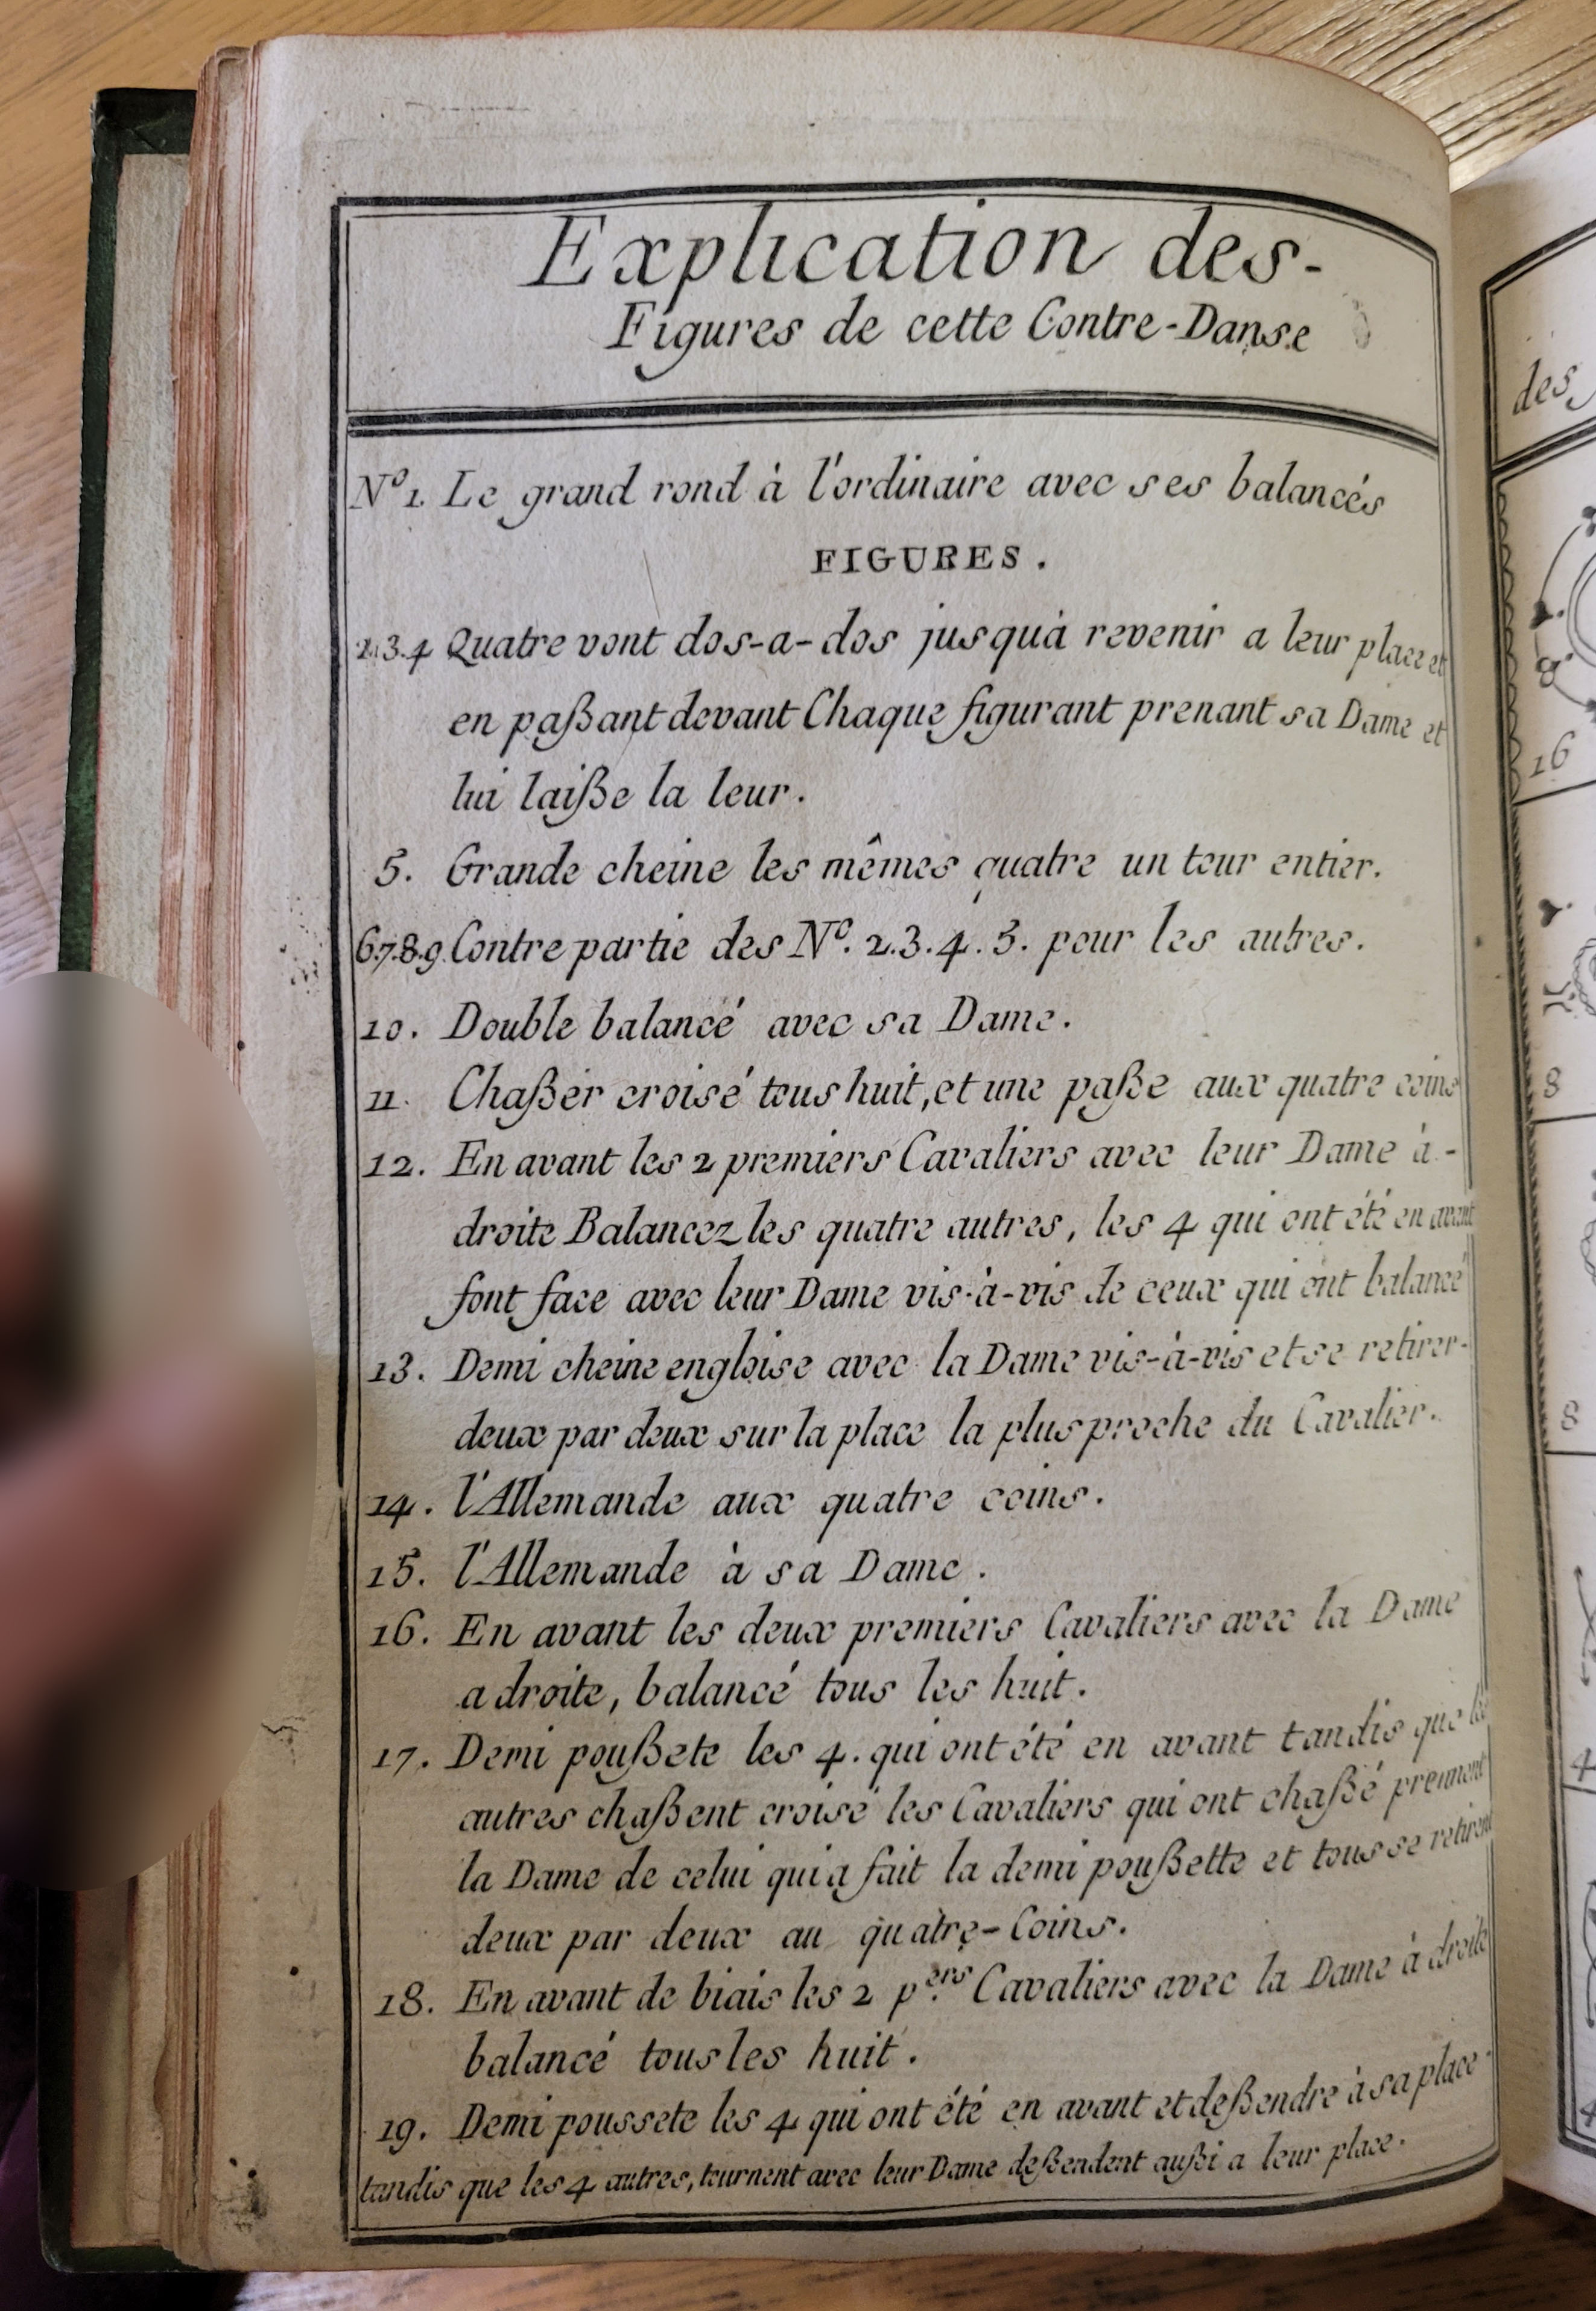 Explication des-
Figures de cette Contre-Danse
Nº1. Le grand rond à l'ordinaire avec ses balancés
FIGURES.
2.3.4 Quatre vont dos-a-dos jusquà revenir a leur place et
en paßant devant Chaque figurant prenant sa Dame et
lui laiße la leur.
5. Grande cheine les mêmes quatre un tour entier.
6.7.8.9. Contre partie des Nº. 2.3.4.5. pour les autres.
10. Double balancé avec sa Dame.
11. Chaßer croisé tous huit, et une paße aux quatre coins
12. En avant les 2 premiers Cavaliers avec leur Dame à-
droite Balancez les quatre autres, les 4 qui ont été en avant
font face avec leur Dame vis-à-vis de ceux qui ont balancé
13. Demi cheine engloise avec la Dame vis-à-vis et se retirer-
deux par deux sur la place la plus proche du Cavalier.
14. l'Allemande aux quatre coins.
15. l'Allemande à sa Dame.
16. En avant les deux premiers Cavaliers avec la Dame
a droite, balancé tous les huit.
17. Demi poußete les 4. qui ont été en avant tandis que les
autres chaßent croisé les Cavaliers qui ont chaßé prennent
la Dame de celui qui a fait la demi poußette et tous se retirent
deux par deux au quatre-Coins.
18. En avant de biais les 2 p.ers Cavaliers avec la Dame à droite
balancé tous les huit.
19. Demi poussete les 4 qui ont été en avant et deßendre à sa place-
tandis que les 4 autres, tournent avec leur Dame deßendent außi a leur place.
des
16
8
8
4